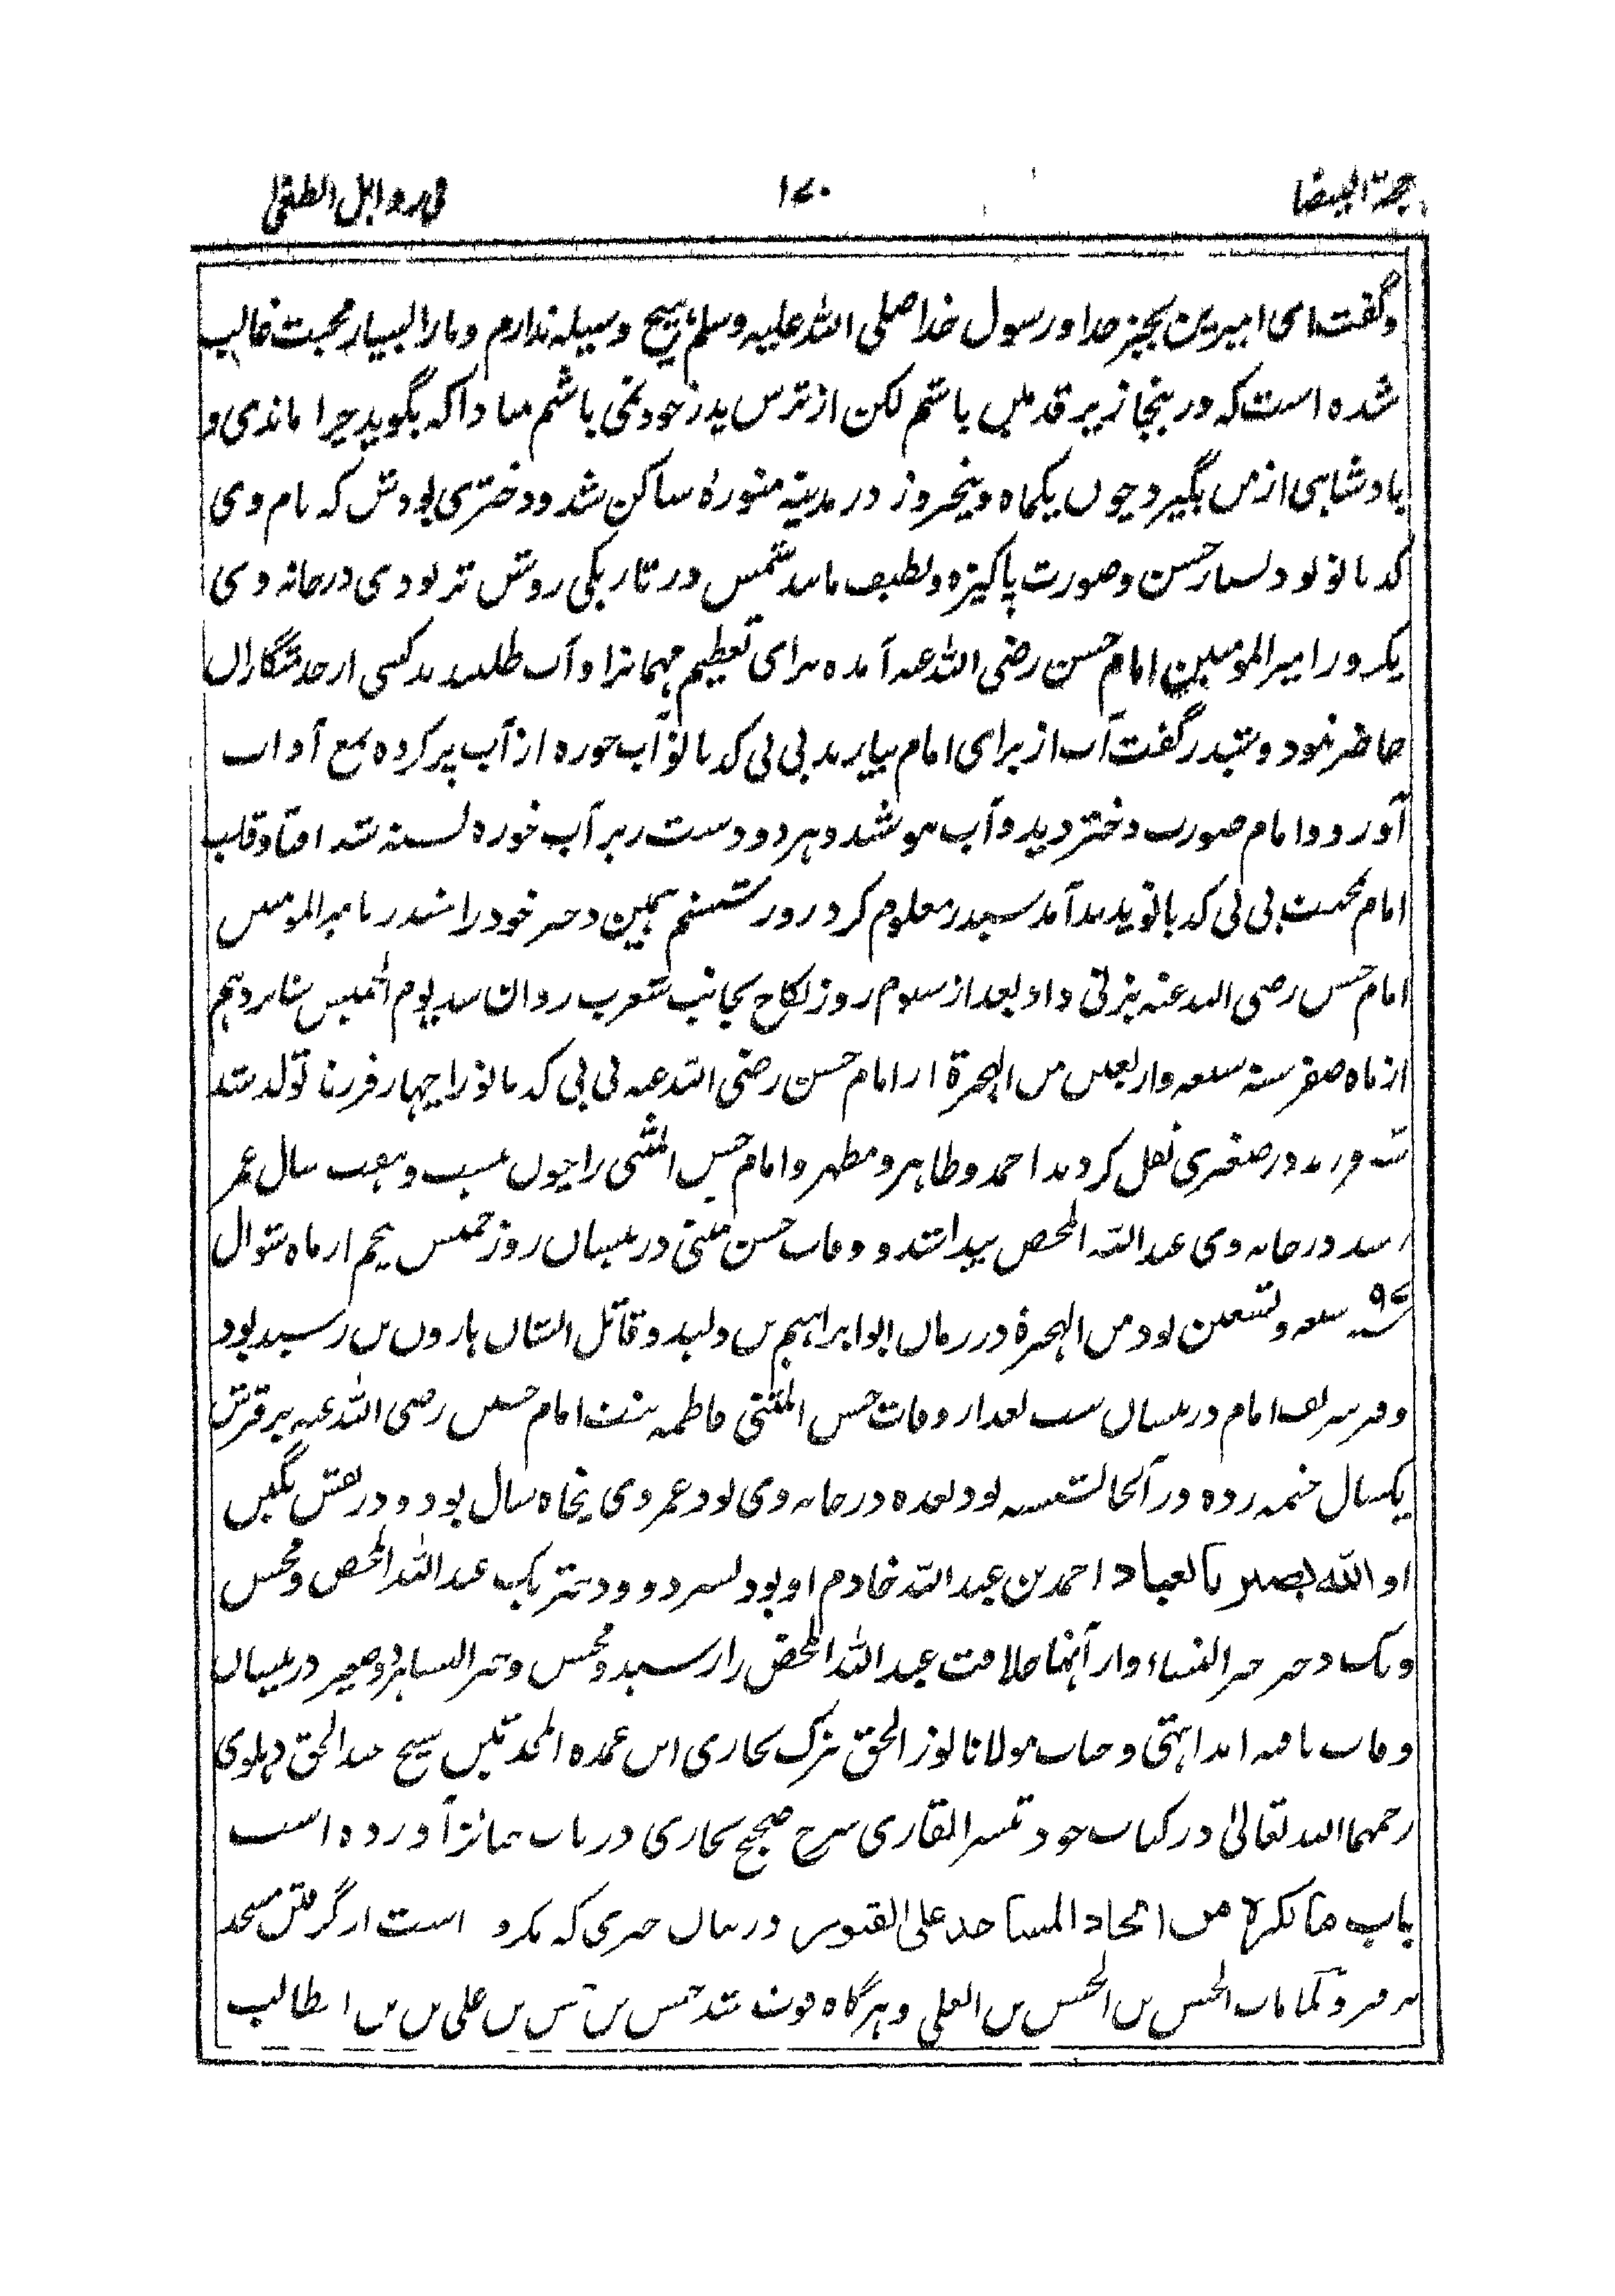 حجة البیضا ۱۷۰ فی رد اهل الطغی
وگفت ای امیر من بجز خدا و رسول خدا صلی الله علیه وسلم ہیچ وسیلہ ندارم و مارا بسیار محبت غالب
شدہ است کہ در ینجا زیر قدمیں باشم لکن از ترس پدر خود نمی باشم مبادا کہ بگوید چرا ماندی و
بادشاہی از من بگیرد چوں یکماہ و پنجروز در مدینہ منورہ ساکن شد و دختری بودش کہ نام وی
کد بانو بود بسیار حسن و صورت پاکیزہ و لطیف مانند شمس در تاریکی روشن تر بودی در خانہ وی
یکروز امیر المومنین امام حسن رضی الله عنہ آمدہ برای تعظیم مہمانرا و آب طلبیدند کسی از خدمتگاراں
حاضر نبود و بتبدر گفت آب از برای امام بیارید بی بی کد بانو آب خورہ از آب پر کردہ بمع آداب
آورد و امام صورت دختر دید و آب ہو شد و ہر دو دست بر آب خورہ بستہ شد افتاد قلب
امام محبت بی بی کد بانو پدید آمد معلوم کرد روز ششم ہمین دختر خود را بامیر المومنین
امام حسن رضی الله عنہ بزنی داد بعد از سوم روز نکاح بجانب عرب روان شد یوم الخمیس شانزدہم
از ماہ صفر سنہ سبعہ و اربعین من الہجرۃ از امام حسن رضی الله عنہ بی بی کد بانو را چہار فرزند تولد شد
سہ فرزند در صغری نقل کردند احمد و طاہر و مطہر و امام حسن المثنی را چوں بیست و ہفت سال عمر
رسید در خانہ وی عبد الله المحض پیدا شد و وفات حسن مثنی در میاں روز خمیس پنجم از ماہ شوال
۹۷ سنہ سبعہ و تسعین بود من الہجرۃ در زماں ابو ابراہیم بن ولید و قاتل ایشاں ہاروں بن رسید بود
و قبر شریف امام در میاں است بعد از وفات حسن المثنی فاطمہ بنت امام حسین رضی الله عنہ بر قبرش
یکسال خیمہ زدہ در آنجا نشستہ بود بعدہ در خانہ وی بود عمر وی پنجاہ سال بود و در نقش نگین
او الله بصیر بالعباد احمد بن عبد الله خادم او بود پسر دو و دختر یک عبد الله المحض و محسن
و یک دختر خیر النساء و از آنہا خلافت عبد الله المحض را رسید و محسن و خیر النساء ہر دو صغیر در میاں
وفات یافتہ اند انتہی و جناب مولانا نور الحق ترک بخاری ابن عمدہ المحدثین شیخ عبد الحق دہلوی
رحمہما الله تعالیٰ در کتاب خود تیسر القاری شرح صحیح بخاری در باب جنائز آوردہ است
باب ما یکرہ من اتخاذ المساجد علی القبور در بیان چیزی کہ مکروہ است از گرفتن مسجد
بر قبر و لما مات الحسن بن الحسن بن العلی و ہرگاہ فوت شد حسن بن حسن بن علی بن ابیطالب